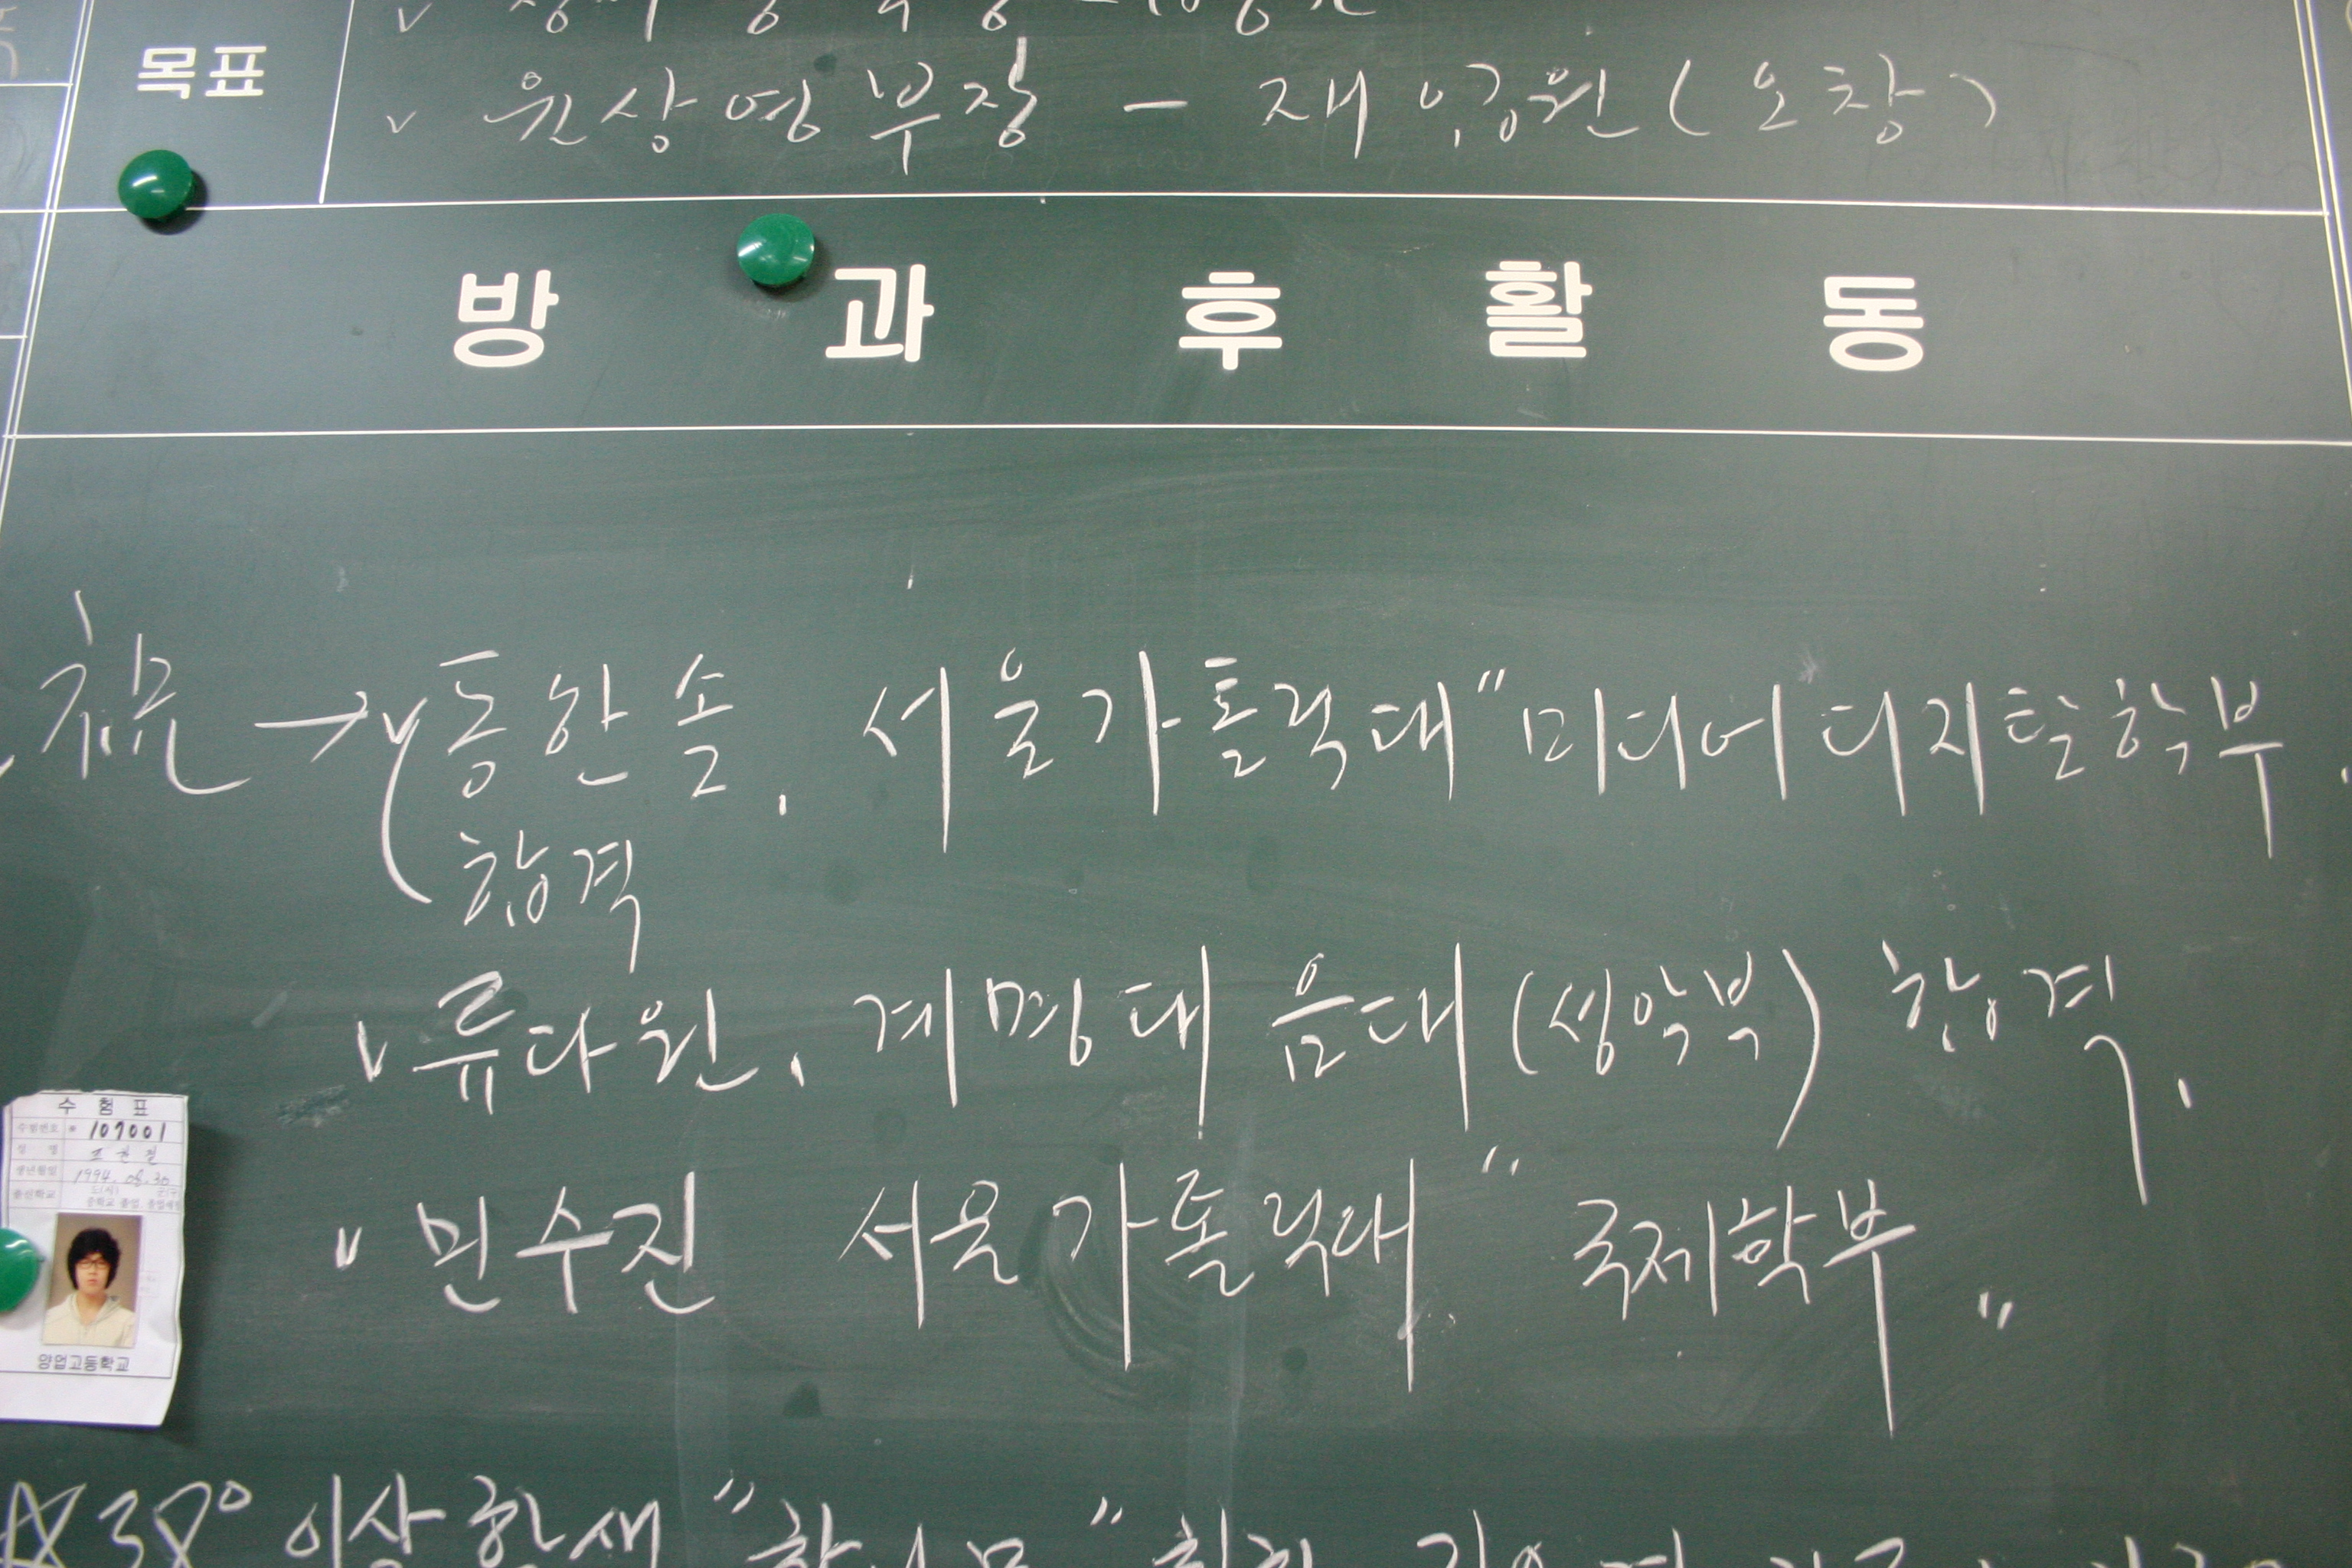 목표
v 원상영부장 - 재입원(오창)
방 과 후 활 동
祝 → v 동한솔, 서울가톨릭대 "미디어디지털학부
합격
v 류다원, 계명대 음대(성악부) 합격,
v 민수진 서울가톨릭대 " 국제학부 "
수 험 표
수험번호 * 107001
성 명
생년월일 1994. 08. 30
출신학교
양업고등학교
38° 이상 학생